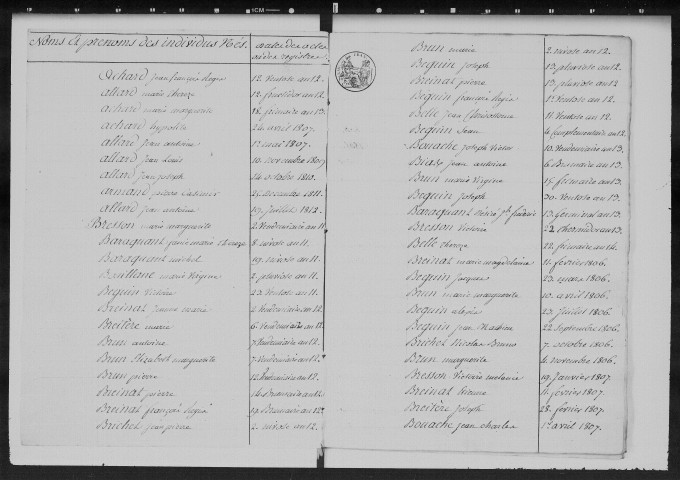 Noms et prenoms des individus Nés. Dates des actes
Achard jean françois 12. Ventose an 12.
allard marie therese 12. fructidor an 12.
achard marie marguerite an 13.
achard hypolite 24. avril 1807.
allard jean antoine 1er mai 1807.
allard jean Louis 10. novembre 1807
allard jean joseph 14. octobre 1810.
armand pierre Casimir 25. Decembre 1811.
allard jean antoine 19. juillet 1812.
Bresson marie marguerite 2. Vendemiaire an 11.
Baraquant marie 8. nivose an 11.
Baraquant michel 19. nivose an 11.
Brillane marie Virginie 2. pluviose an 11.
Beguin Victoire 23. Ventose an 11.
Breinat jeanne marie 2. Vendemiaire an 12.
Breitère marie 6. Vendemiaire an 12.
Brun antoine 7. Vendemiaire an 12.
Brun Elizabeth marguerite 7. Vendemiaire an 12.
Brun pierre 12. Vendemiaire an 12.
Breinat pierre 14. Brumaire an 12.
Breinat françois 19. Brumaire an 12.
Buchet jean pierre 2. nivose an 12.
Brun marie 2. nivose an 12.
Beguin joseph 13. pluviose an 12.
Breinat pierre 13. pluviose an 12.
Beguin françois 1er Ventose an 12.
Belle jean 11. Ventose an 12.
Beguin Jean 4. Complementaire an 12.
Bouache joseph Victor 10. Vendemiaire an 13.
jean antoine 6. Brumaire an 13.
Brun marie Virginie 15. frimaire an 13.
Beguin Joseph 30. Ventose an 13.
Baraquant frederic 13. Germinal an 13.
Bresson Victoire 22. thermidor an 13.
Belle therese 22. frimaire an 14.
Breinat marie magdelaine 11. fevrier 1806.
Beguin jacques 23. mars 1806.
Brun marie marguerite 10. avril 1806.
Beguin alexis 23. Juillet 1806.
Beguin jean Mathieu 22. Septembre 1806.
Buchet Nicolas Bruno 7. octobre 1806.
Brun marguerite 4. novembre 1806.
Bresson Victoire melanie 19. Janvier 1807.
Breinat Etienne 11. fevrier 1807.
Breitère Joseph 28. fevrier 1807.
Bouache jean charles 1er avril 1807.